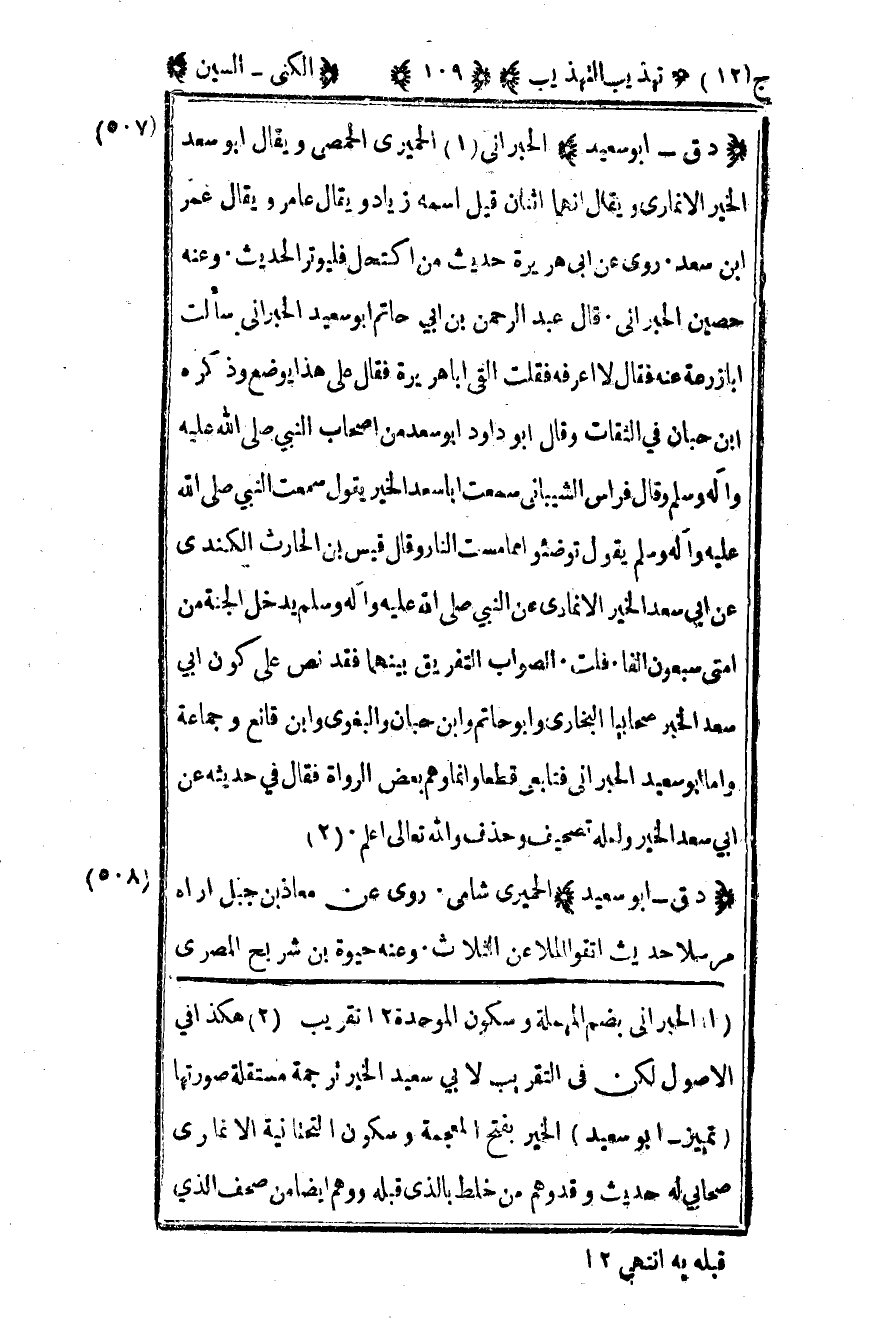 ج (١٢) ﴿ تهذيب التهذيب ﴾ ﴿ ١٠٩ ﴾ ﴿ الكنى ـ السين ﴾
(٥٠٧) ﴿ د ق ـ ابو سعيد ﴾ الحبرانى (١) الحميرى الحمصى ويقال ابو سعد
الخير الانمارى ويقال انهما اثنان قيل اسمه زياد ويقال عامر ويقال عمر
ابن سعد · روى عن ابى هريرة حديث من اكتحل فليوتر الحديث · وعنه
حصين الحبرانى · قال عبد الرحمن بن ابي حاتم ابو سعيد الحبرانى سألت
ابازرعة عنه فقال لا اعرفه فقلت التى اباهريرة فقال على هذا يوضع وذكره
ابن حبان في الثقات وقال ابو داود ابو سعد من اصحاب النبي صلى الله عليه
وآله وسلم وقال فراس الشيبانى سمعت اباسعد الخير يقول سمعت النبي صلى الله
عليه وآله وسلم يقول توضئوا مما مست النار وقال قيس بن الحارث الكندى
عن ابي سعد الخير الانمارى عن النبي صلى الله عليه وآله وسلم يدخل الجنة من
امتى سبعون الفا · قلت · الصواب التفريق بينهما فقد نص على كون ابي
سعد الخير صحابيا البخارى وابو حاتم وابن حبان والبغوى وابن قانع وجماعة
واما ابو سعيد الحبرانى فتابعى قطعا وانما وهم بعض الرواة فقال في حديثه عن
ابي سعد الخير ولعله تصحيف وحذف والله تعالى اعلم · (٢)
(٥٠٨) ﴿ د ق ـ ابو سعيد ﴾ الحميرى شامى · روى عن معاذ بن جبل اراه
مرسلا حديث اتقوا الملاعن الثلاث · وعنه حيوة بن شريح المصرى
(١) الحبرانى بضم المهملة وسكون الموحدة ١٢ تقريب (٢) هكذا في
الاصول لكن فى التقريب لابي سعيد الخير ترجمة مستقلة صورتها
(تمييز ـ ابو سعيد) الخير بفتح المعجمة وسكون التحتانية الانمارى
صحابي له حديث وقد وهم من خلط بالذى قبله ووهم ايضا من صحف الذي
قبله به انتهى ١٢